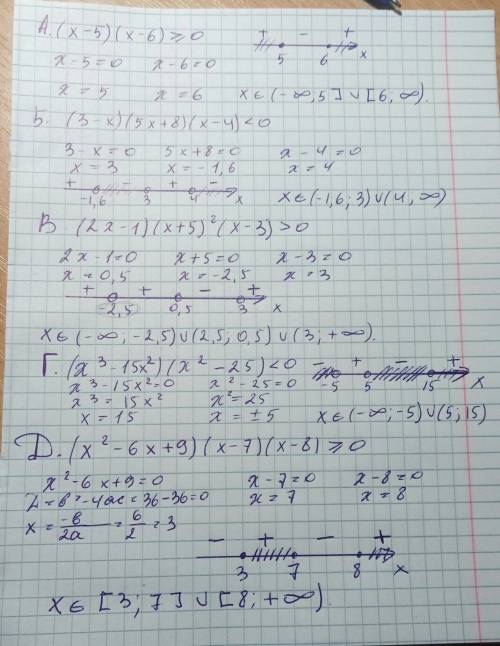 А. (x-5)(x-6) ≥ 0
+ - +
5 6 x
x-5=0 x-6=0
x=5 x=6 x∈(-∞,5]∪[6,∞).
Б. (3-x)(5x+8)(x-4)<0
3-x=0 5x+8=0 x-4=0
x=3 x=-1,6 x=4
+ - + -
-1,6 3 4 x x∈(-1,6;3)∪(4,∞)
В (2x-1)(x+5)²(x-3)>0
2x-1=0 x+5=0 x-3=0
x=0,5 x=-2,5 x=3
+ + - +
-2,5 0,5 3 x
x∈(-∞;-2,5)∪(2,5;0,5)∪(3;+∞).
Г. (x³-15x²)(x²-25)<0
- + - +
-5 5 15 x
x³-15x²=0 x²-25=0
x³=15x² x²=25
x=15 x=±5 x∈(-∞;-5)∪(5;15)
Д. (x²-6x+9)(x-7)(x-8) ≥ 0
x²-6x+9=0 x-7=0 x-8=0
Д=в²-4ac=36-36=0 x=7 x=8
x=-в/2a=6/2=3
- + - +
3 7 8 x
x∈[3;7]∪[8;+∞).